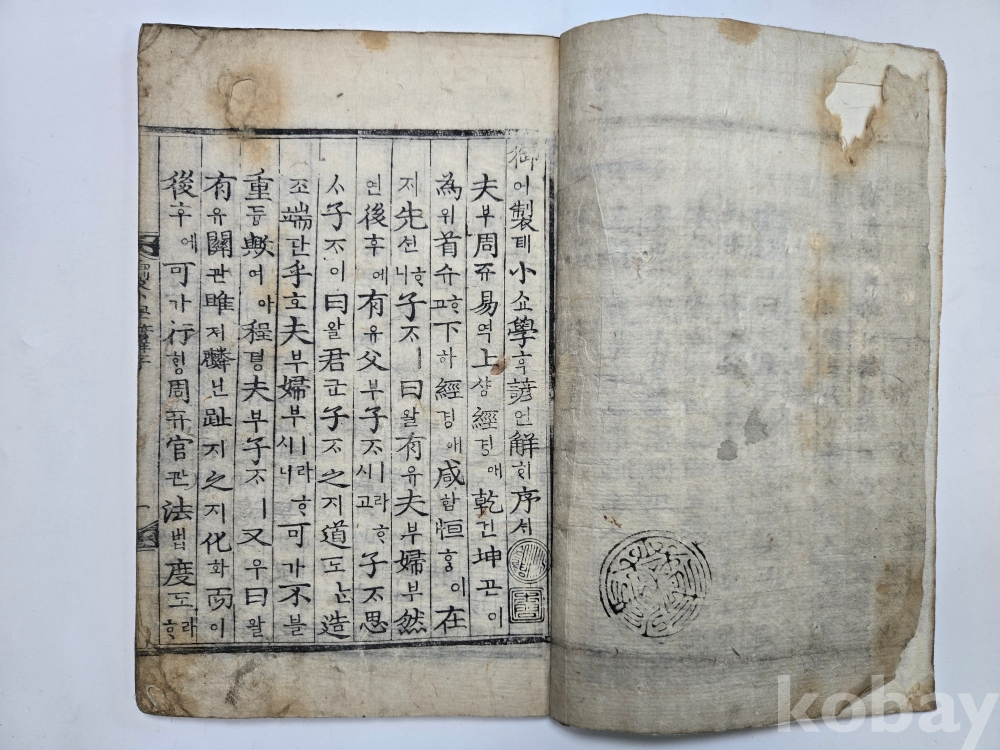 御어製졔小쇼學ᄒᆞᆨ諺언解ᄒᆡ序셔
夫부周쥬易역上샹經경애乾건坤곤이
為위首슈ᄒᆞ고下하經경애咸함恒ᄒᆞᆼ이在
ᄌᆡ先션ᄒᆞ니子ᄌᆞㅣ曰왈有유夫부婦부然
연後후에有유父부子ᄌᆞㅣ라ᄒᆞ시고子ᄌᆞ思
ᄉᆞ子ᄌᆞㅣ曰왈君군子ᄌᆞ之지道도ᄂᆞᆫ造
조端단乎호夫부婦부ㅣ라ᄒᆞ시니可가不블
重듕歟여아程뎡夫부子ᄌᆞㅣ又우曰왈
有유關관雎져麟닌趾지之지化화而이
後후에可가行ᄒᆡᆼ周쥬官관法법度도라ᄒᆞ
kobay